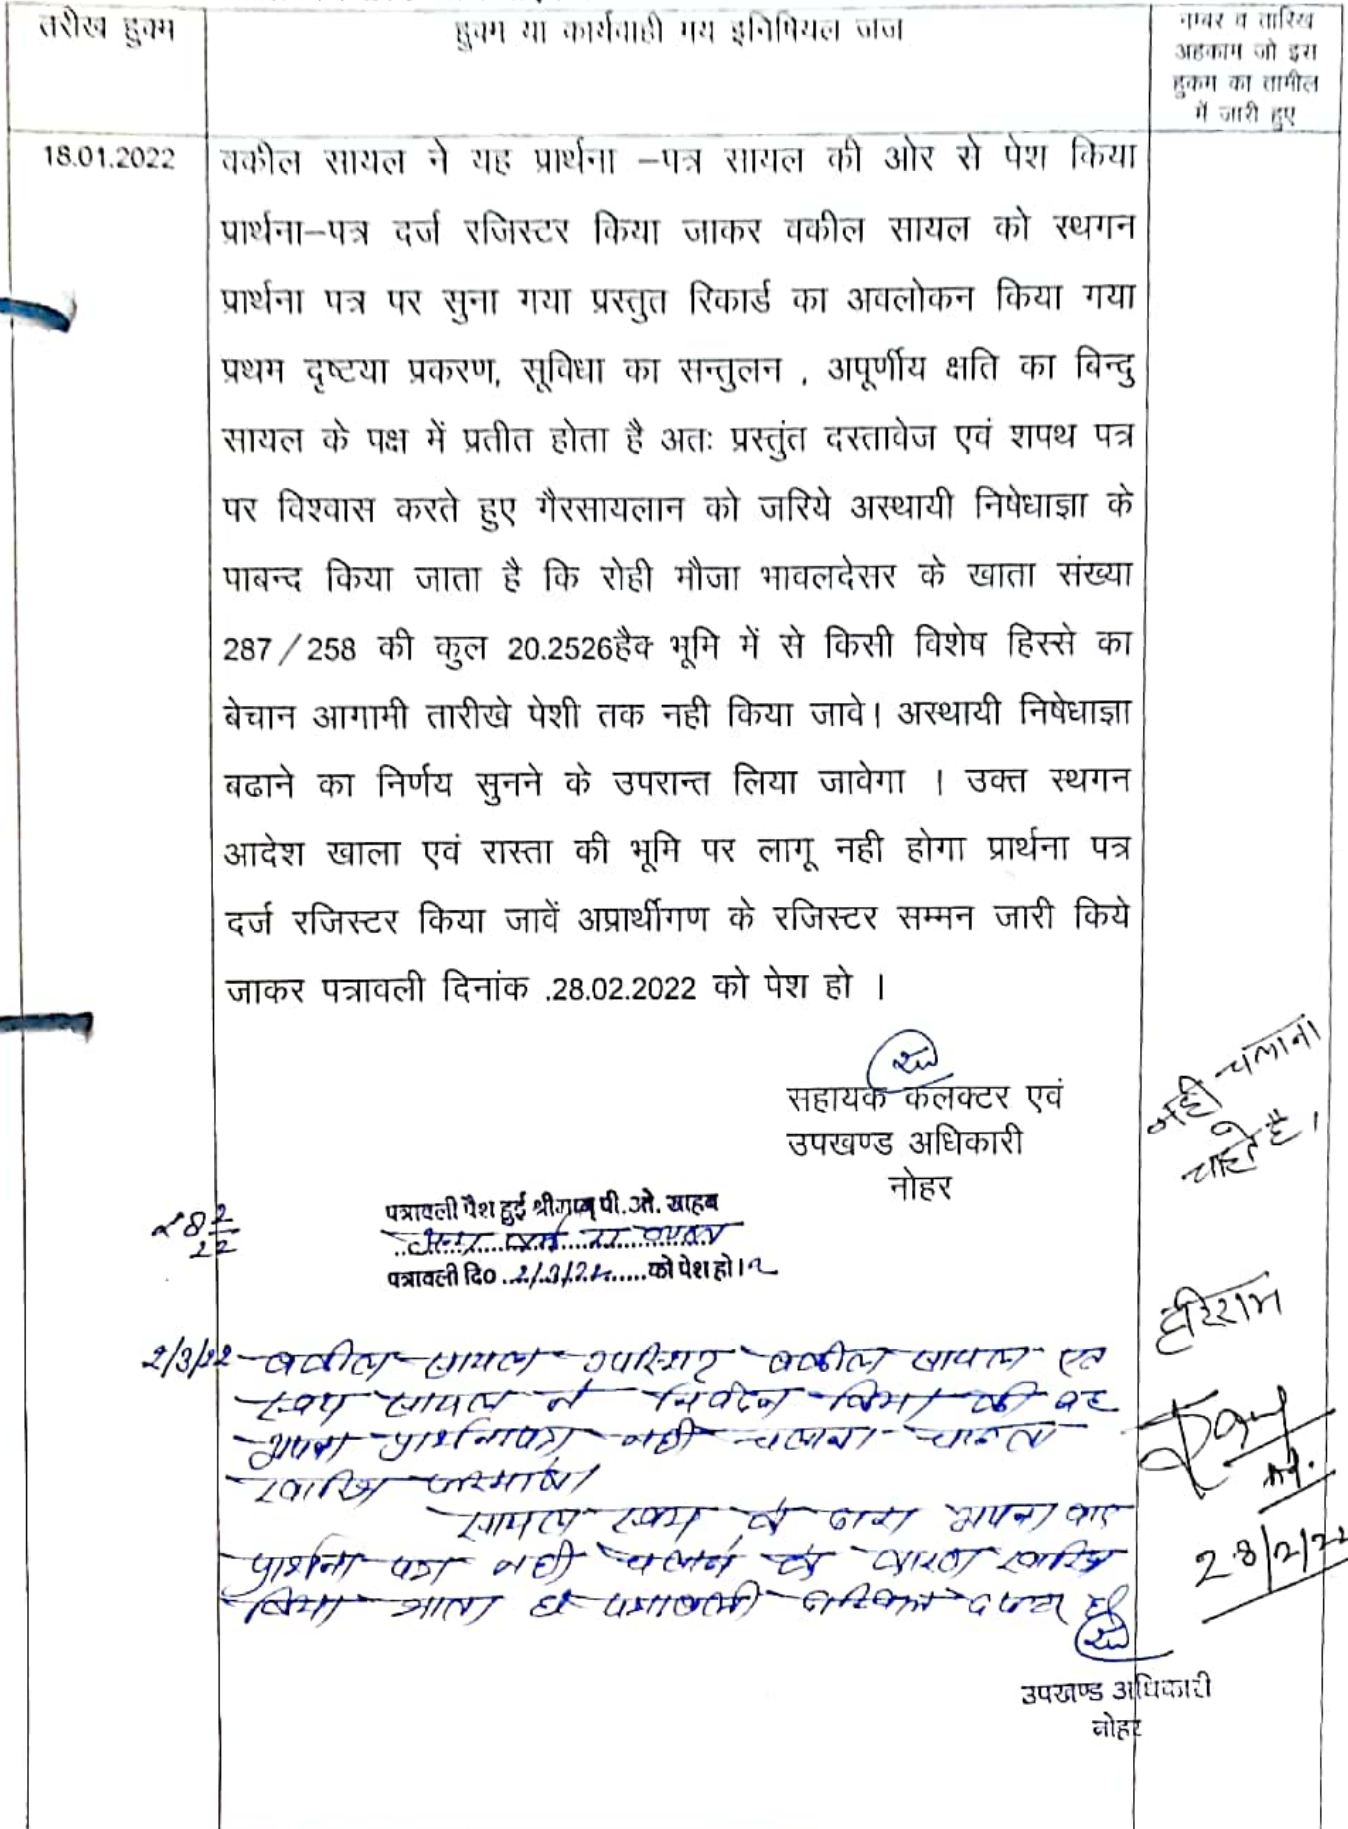 तारीख हुक्म
हुक्म या कार्यवाही मय इनिषियल जज
नम्बर व तारिख
अहकाम जो इस
हुकम का तामील
में जारी हुए
18.01.2022
वकील सायल ने यह प्रार्थना –पत्र सायल की ओर से पेश किया
प्रार्थना–पत्र दर्ज रजिस्टर किया जाकर वकील सायल को स्थगन
प्रार्थना पत्र पर सुना गया प्रस्तुत रिकार्ड का अवलोकन किया गया
प्रथम दृष्टया प्रकरण, सूविधा का सन्तुलन , अपूर्णीय क्षति का बिन्दु
सायल के पक्ष में प्रतीत होता है अतः प्रस्तुंत दस्तावेज एवं शपथ पत्र
पर विश्वास करते हुए गैरसायलान को जरिये अस्थायी निषेधाज्ञा के
पाबन्द किया जाता है कि रोही मौजा भावलदेसर के खाता संख्या
287/258 की कुल 20.2526हैक् भूमि में से किसी विशेष हिस्से का
बेचान आगामी तारीखे पेशी तक नही किया जावे। अस्थायी निषेधाज्ञा
बढाने का निर्णय सुनने के उपरान्त लिया जावेगा । उक्त स्थगन
आदेश खाला एवं रास्ता की भूमि पर लागू नही होगा प्रार्थना पत्र
दर्ज रजिस्टर किया जावें अप्रार्थीगण के रजिस्टर सम्मन जारी किये
जाकर पत्रावली दिनांक .28.02.2022 को पेश हो ।
सहायक कलक्टर एवं
उपखण्ड अधिकारी
नोहर
नही चलाना
चाहते है।
28/2/22
पत्रावली पेश हुई श्रीमान् पी. ओ. साहब
पत्रावली दि० 2/3/22 को पेश हो।
हरिराम
2/3/22 वकील सायल उपस्थित वकील सायल एव
स्वय सायल ने निवेदन किया की वह
अपना प्रार्थनापत्र नही चलाना चाहता
खारिज फरमावे।
सायल स्वय के द्वारा अपना वाद
प्रार्थना पत्र नही चलाने के कारण खारिज
किया जाता है पत्रावली दाखिल दफ्तर हो
28/2/22
उपखण्ड अधिकारी
नोहर